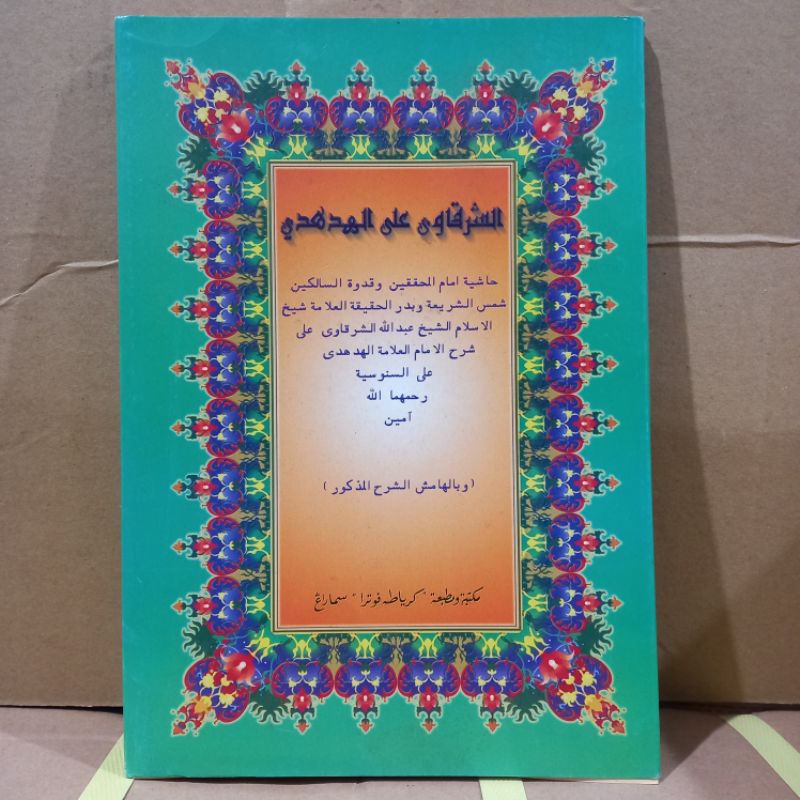 الشرقاوى على الهدهدي
حاشية امام المحققين وقدوة السالكين
شمس الشريعة وبدر الحقيقة العلامة شيخ
الاسلام الشيخ عبدالله الشرقاوى على
شرح الامام العلامة الهدهدى
على السنوسية
رحمهما الله
آمين
(وبالهامش الشرح المذكور)
مكتبة ومطبعة "كرياطه فوترا" سماراڠ